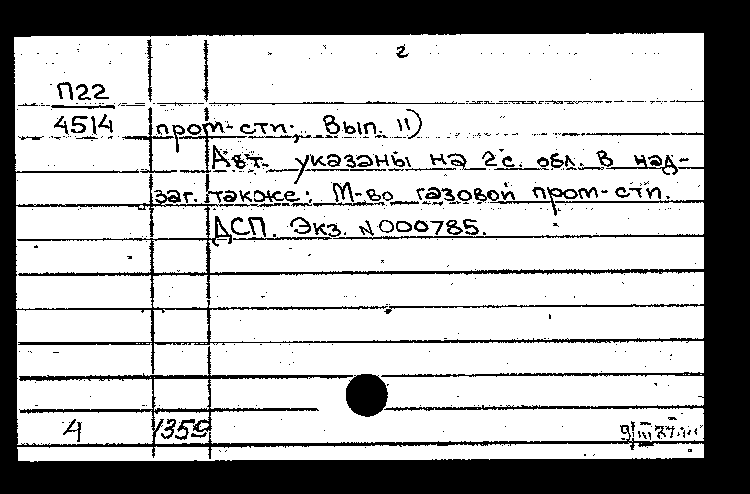 2
П22
4514
пром-сти; Вып. 11)
Авт. указаны на 2 с. обл. В над-
заг. также: М-во газовой пром-сти.
ДСП. Экз. №000785.
4 1359